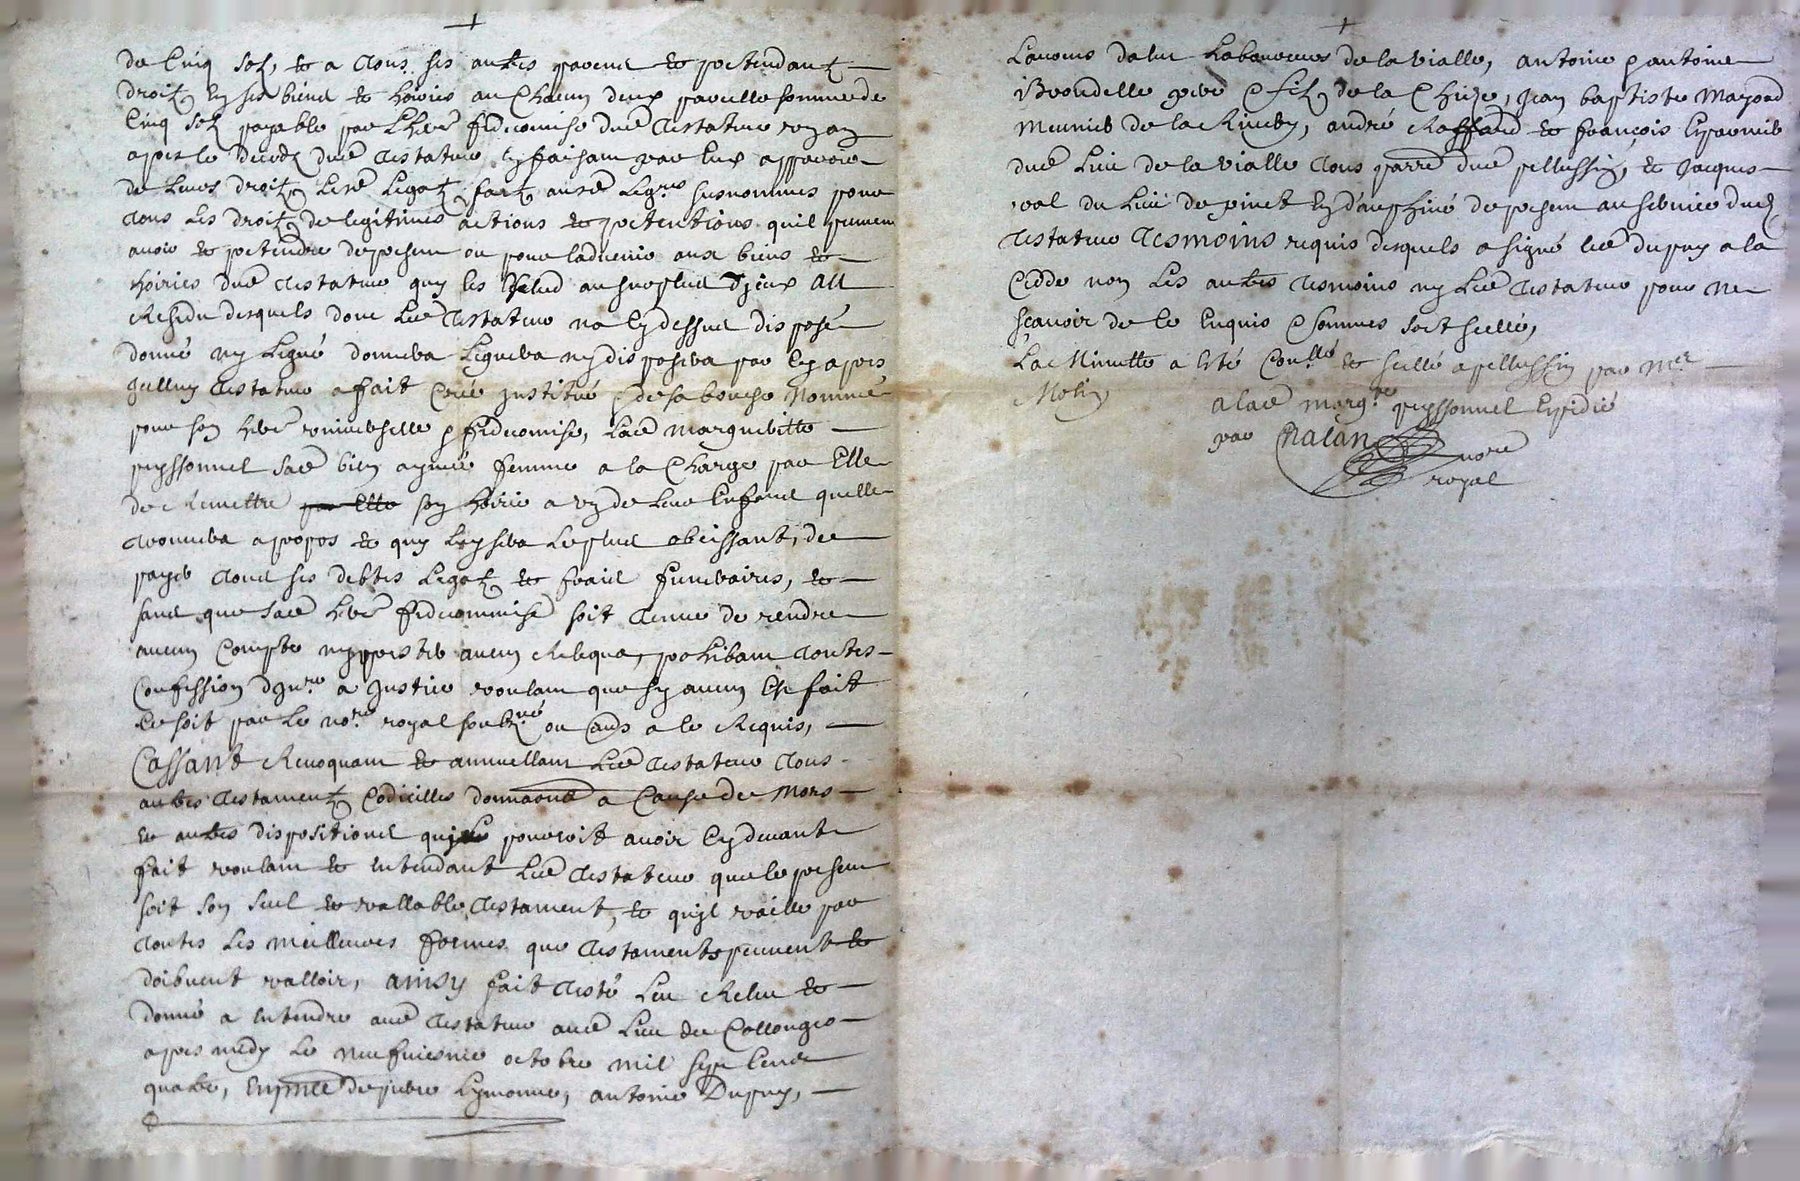 de Cinq solz, et a tous ses autres parens et pretendantz
droitz en ses biens et hoiries a un Chacun deux pareille somme de
Cinq solz payable par lher fideicomise dud testateur un an
apres le deces dud testateur en faisant par eux apparoir
de leurs droitz Lesd Legatz faitz ausd Legres susnommes pour
tous les droitz de legitimes actions et pretentions quil peuvent
avoir et pretendre de present ou pour ladvenir aux biens et
hoiries dud testateur quy les exclud au surplus Dyceux AU
Residu desquels dont Led testateur na cy dessus disposé
donné ny Legué donnera Leguera ny disposera par cy apres
Jcelluy testateur a fait Créé Jnstitué et de sa bouche Nommé
pour son her universelle et fideicomise, Lad Margueritte
peyssonnel sad bien aymée femme a la Charge par Elle
de Remettre par Elle son hoirie a un de leur Enfans quelle
trouvera a propos et quy Luy sera Le plus obeissant, de
payer tous ses debtes Legatz et frais funeraires, et
sans que sad her fideicommise soit tenue de rendre
aucun Compte ny prester aucun Reliqua, prohibant toutes
Confession dInre a Justice voulant que sy aucun Est fait
Ce soit par Le nore royal soubzné ou Cauds a le Requis,
Cassant Revoquant et annullant Led testateur tous
autres testamentz Codicilles donnaons a Cause de Mors
et autres dispositions quil pourroit avoir Cy devant
fait voulant et entendant Led testateur que le present
soit son seul et vallable testament, et quil vaille par
toutes Les meilleures formes que testaments peuvent et
doibvent valloir, ainsy fait testé Leu Releu et
donné a Entendre aud testateur aud Lieu de Collonges
apres midy Le neufviesme octobre mil sept Cents
quatre, En pnce de pierre Eymonne, antoine Dupuy,
Lavocus daleu Laboureurs de la Vialle, antoine et antoine
Brondelle pere et filz de la Chieze, Jean baptiste Mazord
Meunier de la Rivoery, andré Raffard et françois Esparmieb
dud Lieu de la Vialle tous parre dud pellussin, et Jacques
val du Lieu de pinet En dauphiné de present au service dud
testateur tesmoins requis desquels a signé led dupuy a la
Cedde non Les autres tesmoins ny Led testateur pour ne
sçavoir de ce Enquis et sommes soit scellé,
La Minutte a Esté Conllé et scellé a pellussin par Mer
Molin
a lad margte peyssonnel Expedié
par Chalan
nore
royal